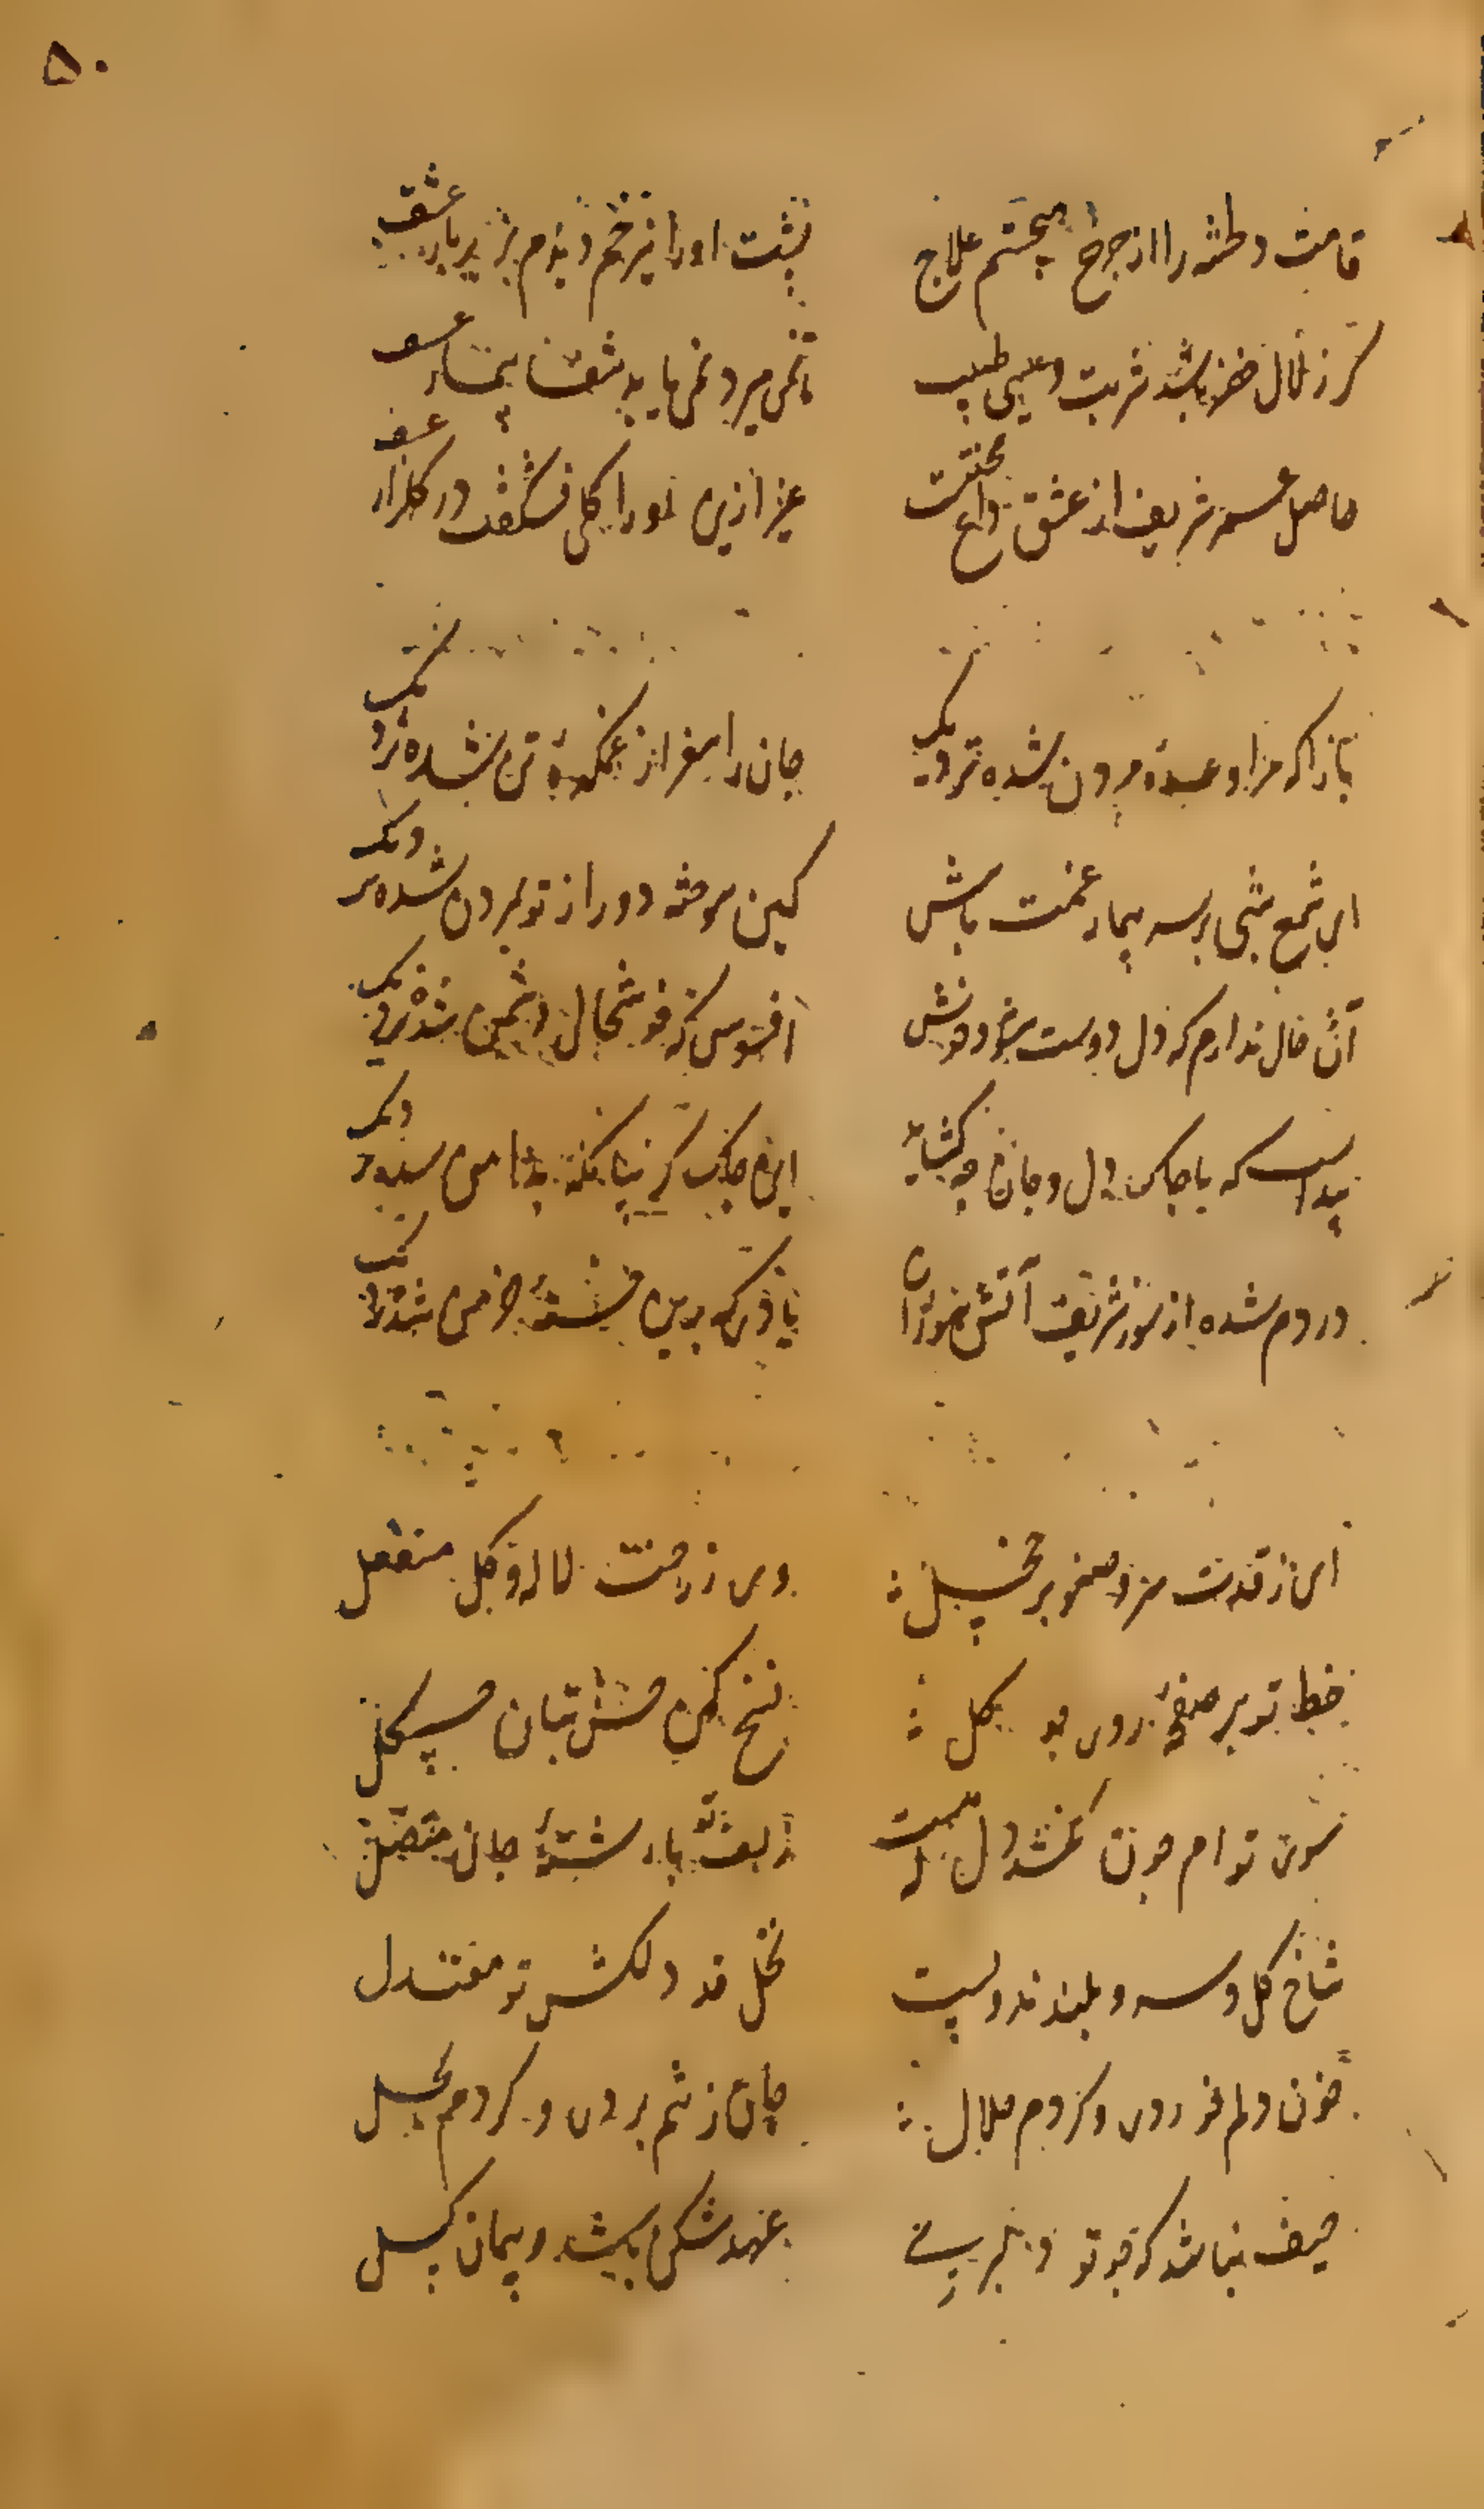 ۵۰
قامت و طشه را از چرخ میجستم علاج پشت او را نیز خم دیدم بزیر بار عشق
گر زلال خضر باشد شربت و عیسی طبیب تا نمی میرد نمی یابد شفا بیمار عشق
حاصل عمر شریف از عشق داغ محنتست غیر ازین او را گلی نشکفت در گلزار عشق
باز آ که مرا وعده مردن شده نزدیک جان را سفر از غمکده تن شده نزدیک
ای شمع شبی بر سر بیمار غمت باش کین سوخته دور از تو بمردن شده نزدیک
آن حال ندارم که دل دوست بسوزد افسوس که خوشحالی دشمن شده نزدیک
پیداست که با چاک دل و جان چه گشاید این چاک گریبان که بدامن شده نزدیک
در دم شده از سوز شریف آتش سوزان یا ذی که برین خسته خرمن شده نزدیک
ای ز قدت سرو صنوبر خجل وی ز رخت لاله و گل منفعل
خط تو بر صفحه روی چو گل نسخ کن حسن بتان چگل
سوی توام چون نکشد دل که هست زلف تو با رشته جان متصل
شاخ گل و سرو بلندند و پست نخل قد دلکش تو معتدل
خون دلم خوردی و کردم حلال جان ز تنم بردی و کردم بحل
حیف نباشد که چو تو دلبری عهد شکن باشد و پیمان گسل